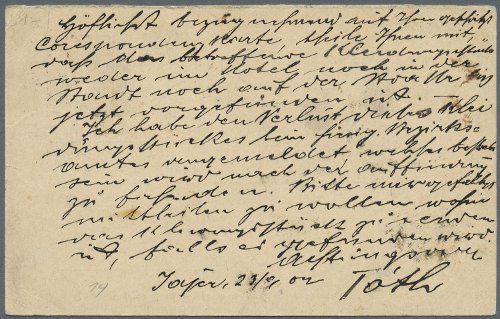 Höflichst bezugnehmend auf Ihre geschätzte
Corespondenzkarte, theile Ihnen mit,
daß das betreffende Kleidungsstück
weder im Hotel noch in der
Stadt noch auf der Straße bis
jetzt vorgefunden ist.
Ich habe den Verlust dieses Klei
dungstückes beim hiesig. Bezirks
amte angemeldet welches
sein wird nach der auffindung
zu fahnden. Bitte mir gefälligst
mittheilen zu wollen wohin
das Kleidungstück zu senden
ist, falls es gefunden wird.
Achtungsvoll
Jajce, 23/9 02 Tóth